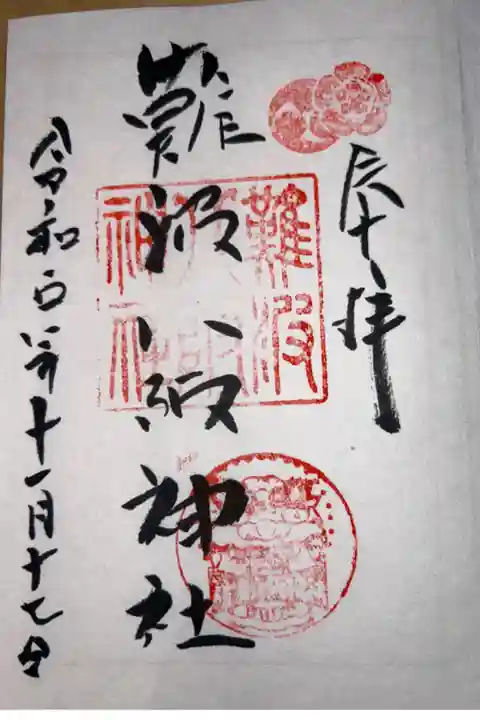 奉拝
難波八阪神社
難波
八阪
神社
令和年十一月十七日